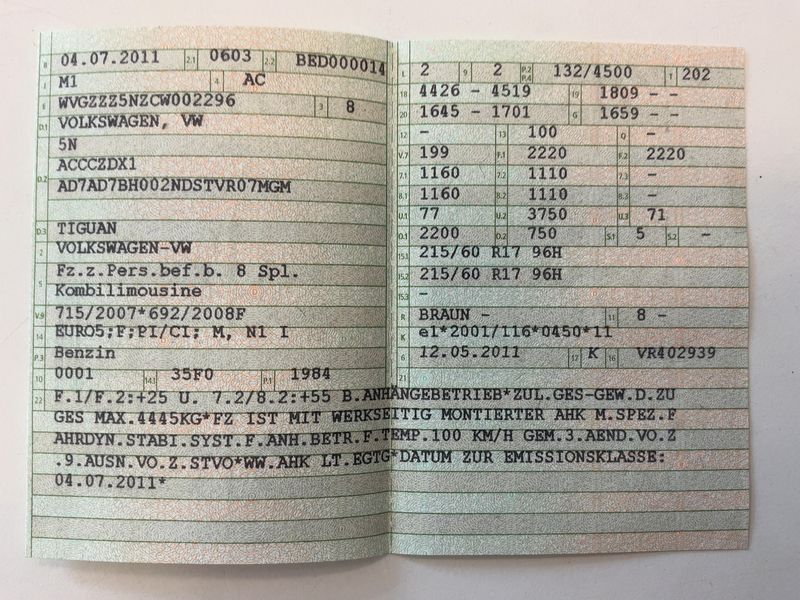 B 04.07.2011 2.1 0603 2.2 BED000014
J M1 4 AC
E WVGZZZ5NZCW002296 3 8
D.1 VOLKSWAGEN, VW
5N
D.2 ACCCZDX1
AD7AD7BH002NDSTVR07MGM
D.3 TIGUAN
2 VOLKSWAGEN-VW
5 Fz.z.Pers.bef.b. 8 Spl.
Kombilimousine
V.9 715/2007*692/2008F
14 EURO5;F;PI/CI; M, N1 I
P.3 Benzin
10 0001 14.1 35F0 P.1 1984
L 2 9 2 P.2 P.4 132/4500 T 202
18 4426 - 4519 19 1809 - -
20 1645 - 1701 G 1659 - -
12 - 13 100 Q -
V.7 199 F.1 2220 F.2 2220
7.1 1160 7.2 1110 7.3 -
8.1 1160 8.2 1110 8.3 -
U.1 77 U.2 3750 U.3 71
O.1 2200 O.2 750 S.1 5 S.2 -
15.1 215/60 R17 96H
15.2 215/60 R17 96H
15.3 -
R BRAUN - 11 8 -
K e1*2001/116*0450*11
6 12.05.2011 17 K 16 VR402939
21
22 F.1/F.2:+25 U. 7.2/8.2:+55 B.ANHÄNGEBETRIEB*ZUL.GES-GEW.D.ZU
GES MAX.4445KG*FZ IST MIT WERKSEITIG MONTIERTER AHK M.SPEZ.F
AHRDYN.STABI.SYST.F.ANH.BETR.F.TEMP.100 KM/H GEM.3.AEND.VO.Z
.9.AUSN.VO.Z.STVO*WW.AHK LT.EGTG*DATUM ZUR EMISSIONSKLASSE:
04.07.2011*